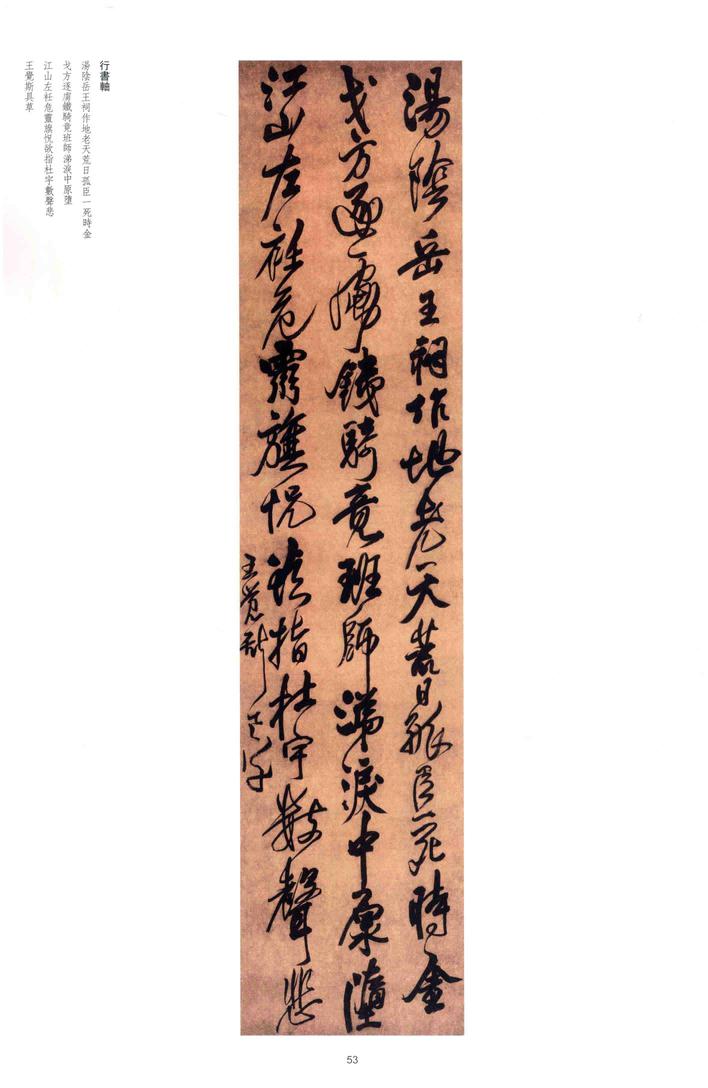 行書軸
湯陰岳王祠作地老天荒日孤臣一死時金
戈方逐虜鐵騎竟班師涕淚中原墮
江山左衽危靈旗怳欲指杜宇數聲悲
王覺斯具草
湯陰岳王祠作地老天荒日孤臣一死時金
戈方逐虜鐵騎竟班師涕淚中原墮
江山左衽危靈旗怳欲指杜宇數聲悲
王覺斯具草
53